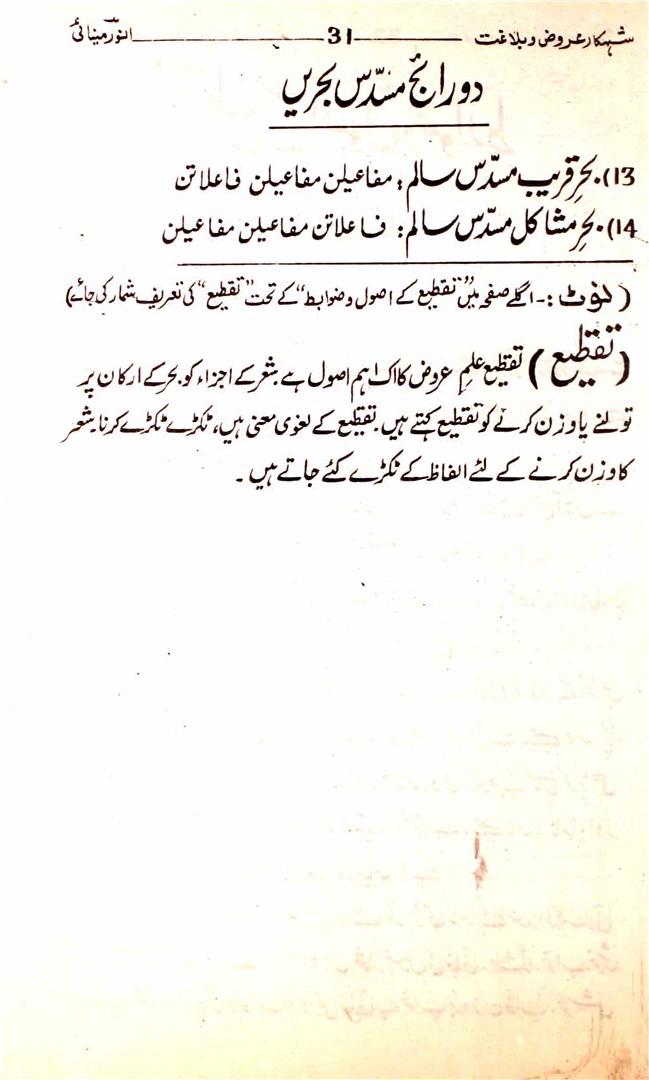 شہکار عروض و بلاغت ــــــ 31 ــــــ انور مینائی
دو رائج مسدّس بحریں
(13) بحرِ قریب مسدّس سالم: مفاعیلن مفاعیلن فاعلاتن
(14) بحرِ مشاکل مسدّس سالم: فاعلاتن مفاعیلن مفاعیلن
(نوٹ:- اگلے صفحہ میں "تقطیع کے اصول و ضوابط" کے تحت "تقطیع" کی تعریف شمار کی جائے)
(تقطیع) تقطیع علمِ عروض کا اک اہم اصول ہے شعر کے اجزاء کو بحر کے ارکان پر
تولنے یا وزن کرنے کو تقطیع کہتے ہیں۔ تقطیع کے لغوی معنی ہیں، ٹکڑے ٹکڑے کرنا۔ شعر
کا وزن کرنے کے لئے الفاظ کے ٹکڑے کئے جاتے ہیں۔